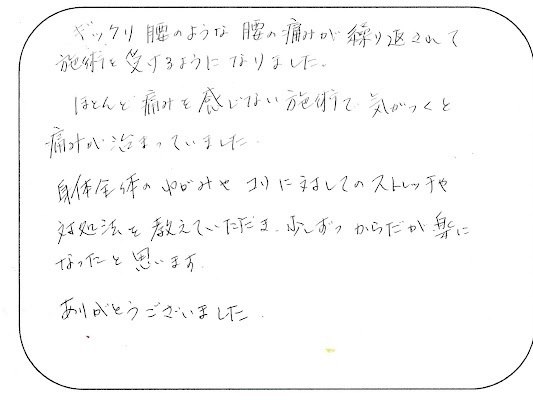 ギックリ腰のような腰の痛みが繰り返されて
施術を受けるようになりました。
ほとんど痛みを感じない施術で気がつくと
痛みが治まっていました。
身体全体のゆがみやコリに対してのストレッチや
対処法を教えていただき、少しずつからだが楽に
なったと思います。
ありがとうございました。